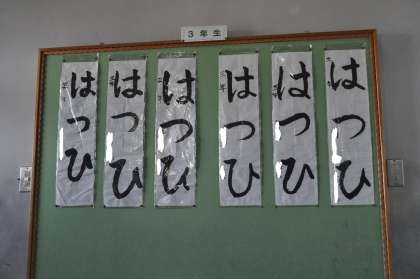 3年生
はつひ
はつひ
はつひ
はつひ
はつひ
はつひ